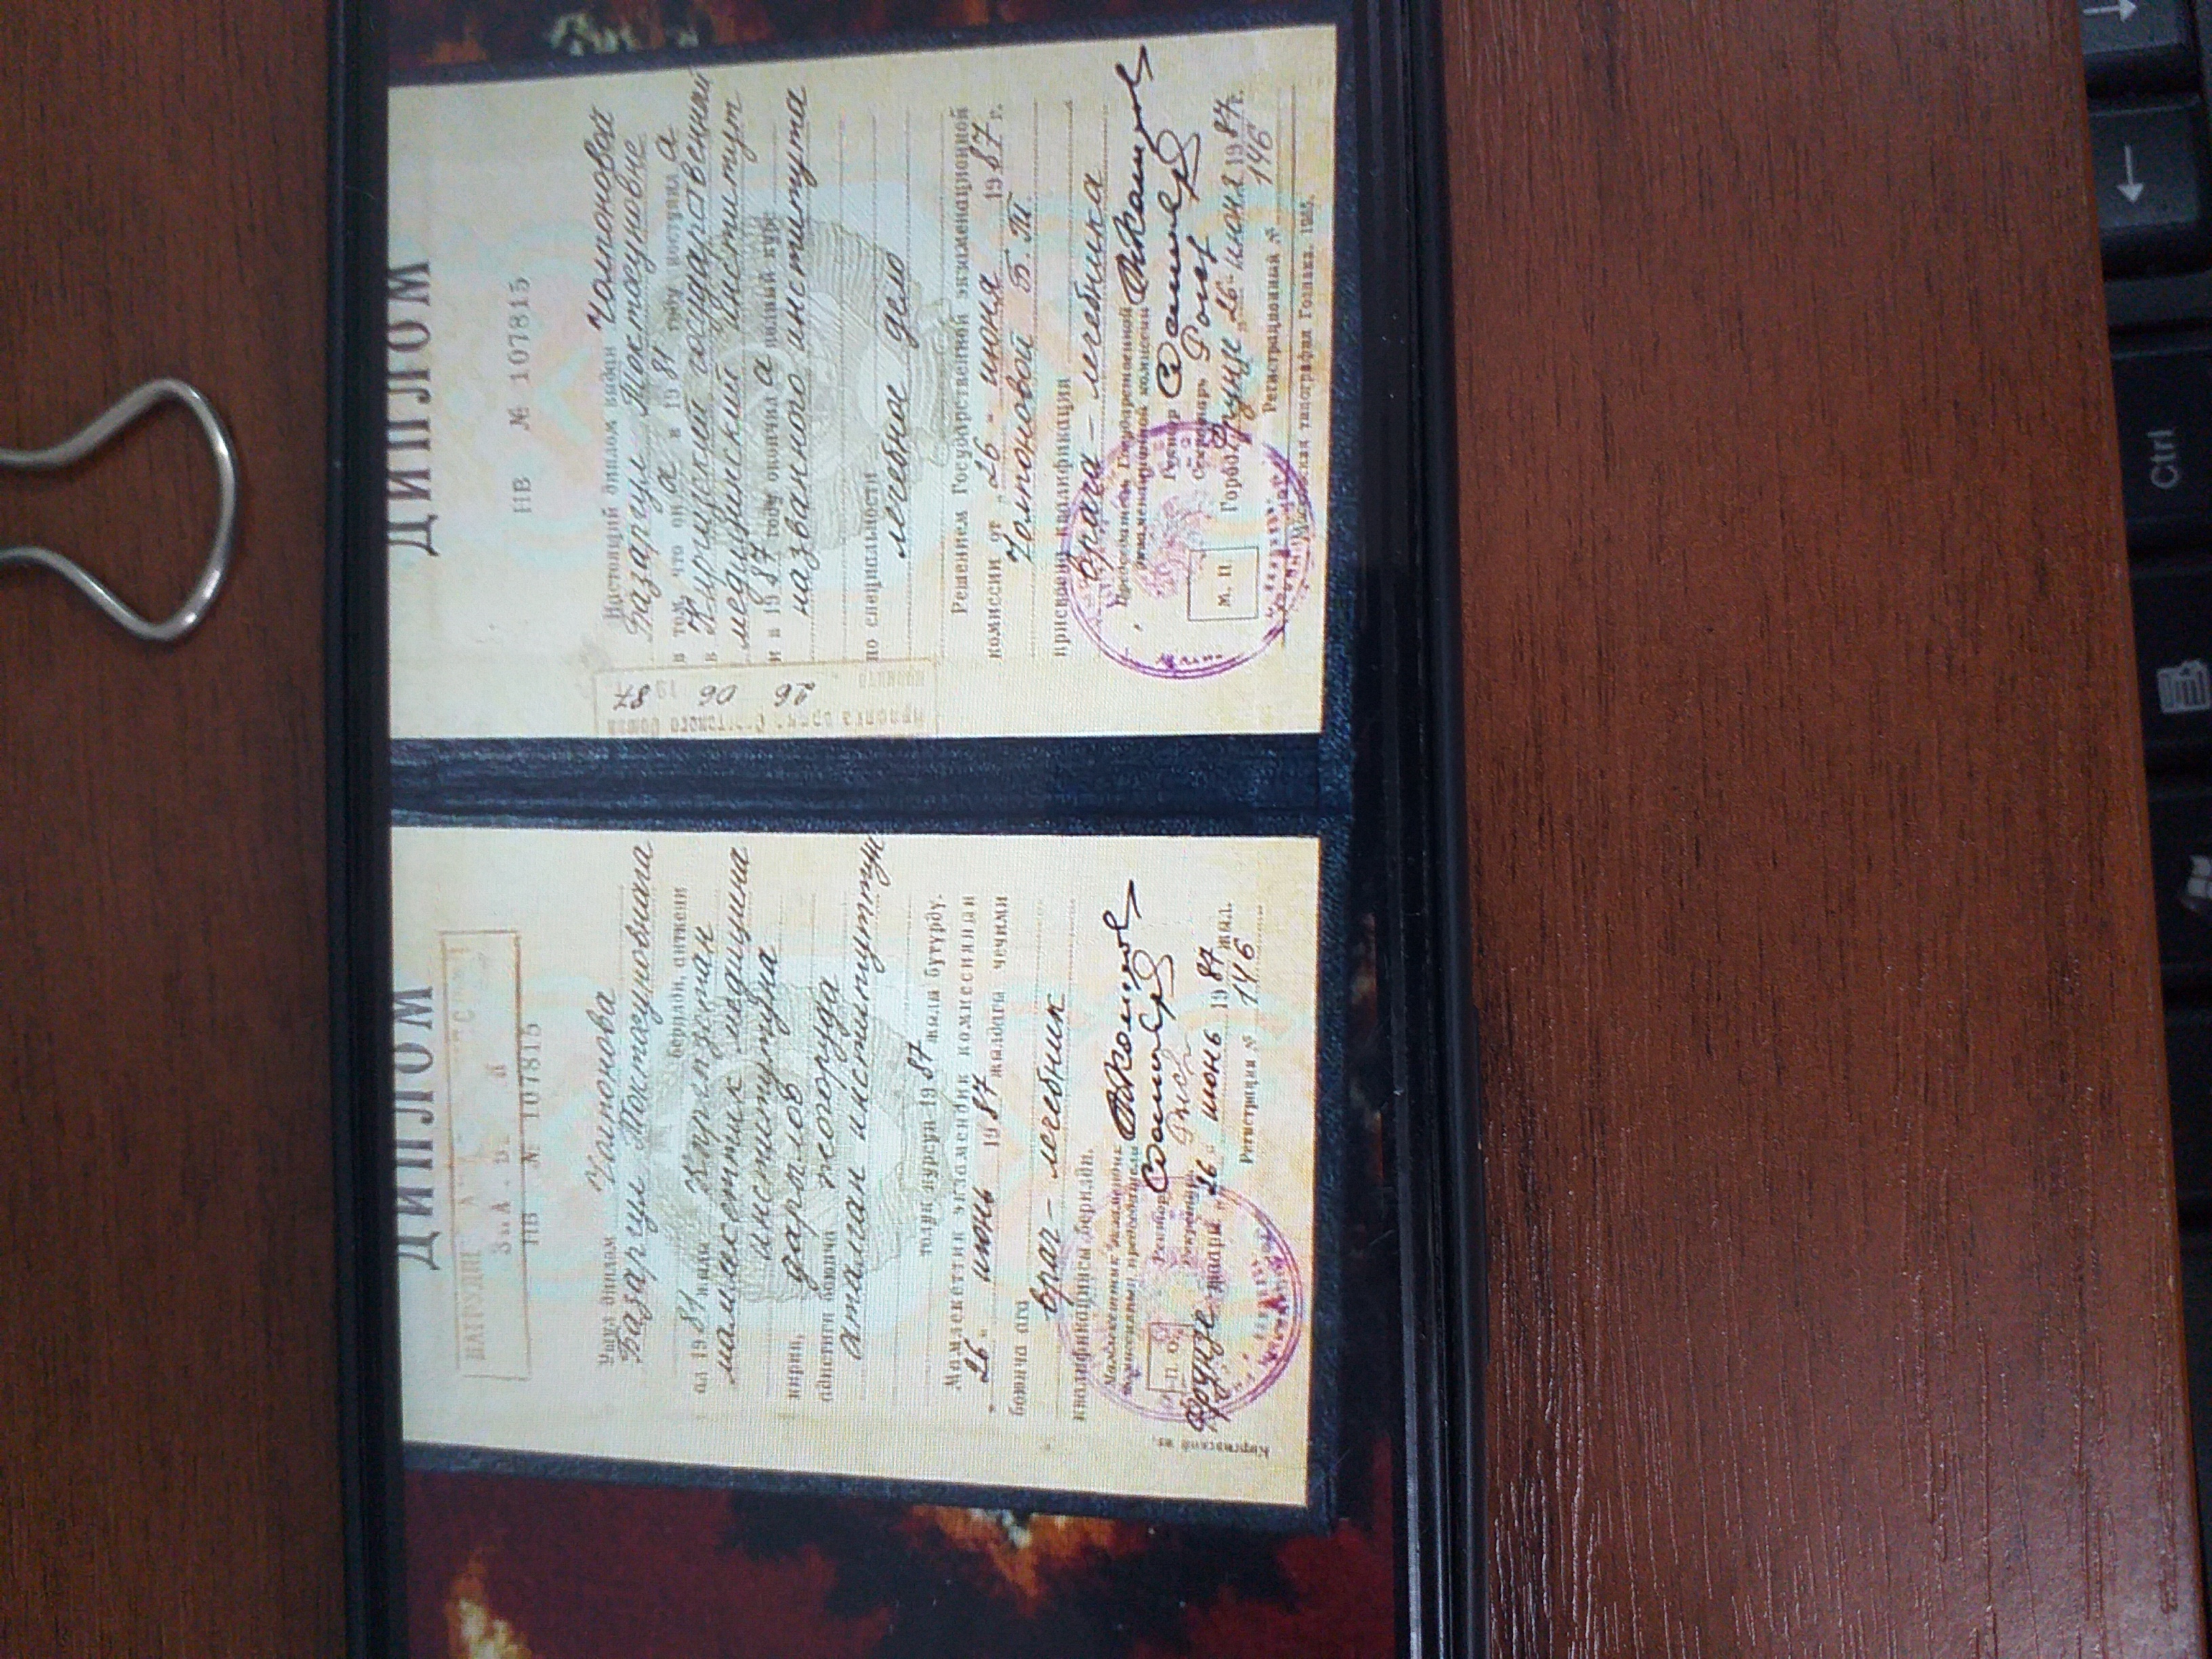 ДИПЛОМ
НВ № 107815
Ушул диплом Чолпонова
Базаргул Токтосуновнага
берилди, анткени
ал 1981 жылы Кыргызстан
мамлекеттик медицина
институтуна
кирип, дарылоо
адистиги боюнча жогоруда
аталган институттун
толук курсун 1987 жылы бүтүрдү.
Мамлекеттик экзамендик комиссиянын
"26" июнь 1987 жылдагы чечими
боюнча ага
врач-лечебник
квалификациясы берилди.
Мамлекеттик экзамендик
комиссиянын председатели
Ректор
Секретарь
П. О.
Фрунзе шаары "26" июнь 1987 жыл.
Регистрация № 146
Киргизский яз.
ДИПЛОМ
НВ № 107815
26 06 1987
Настоящий диплом выдан Чолпоновой
Базаргул Токтосуновне
в том, что он а в 1981 году поступил а
в Киргизский государственный
медицинский институт
и в 1987 году окончил а полный курс
названного института
по специальности
лечебное дело
Решением Государственной экзаменационной
комиссии от "26" июня 1987 г.
Чолпоновой Б.Т.
присвоена квалификация
врача-лечебника
Председатель Государственной
экзаменационной комиссии
Ректор
Секретарь
М. П.
Город Фрунзе "26" июня 1987 г.
Регистрационный № 146
Московская типография Гознака. 1985.
Ctrl